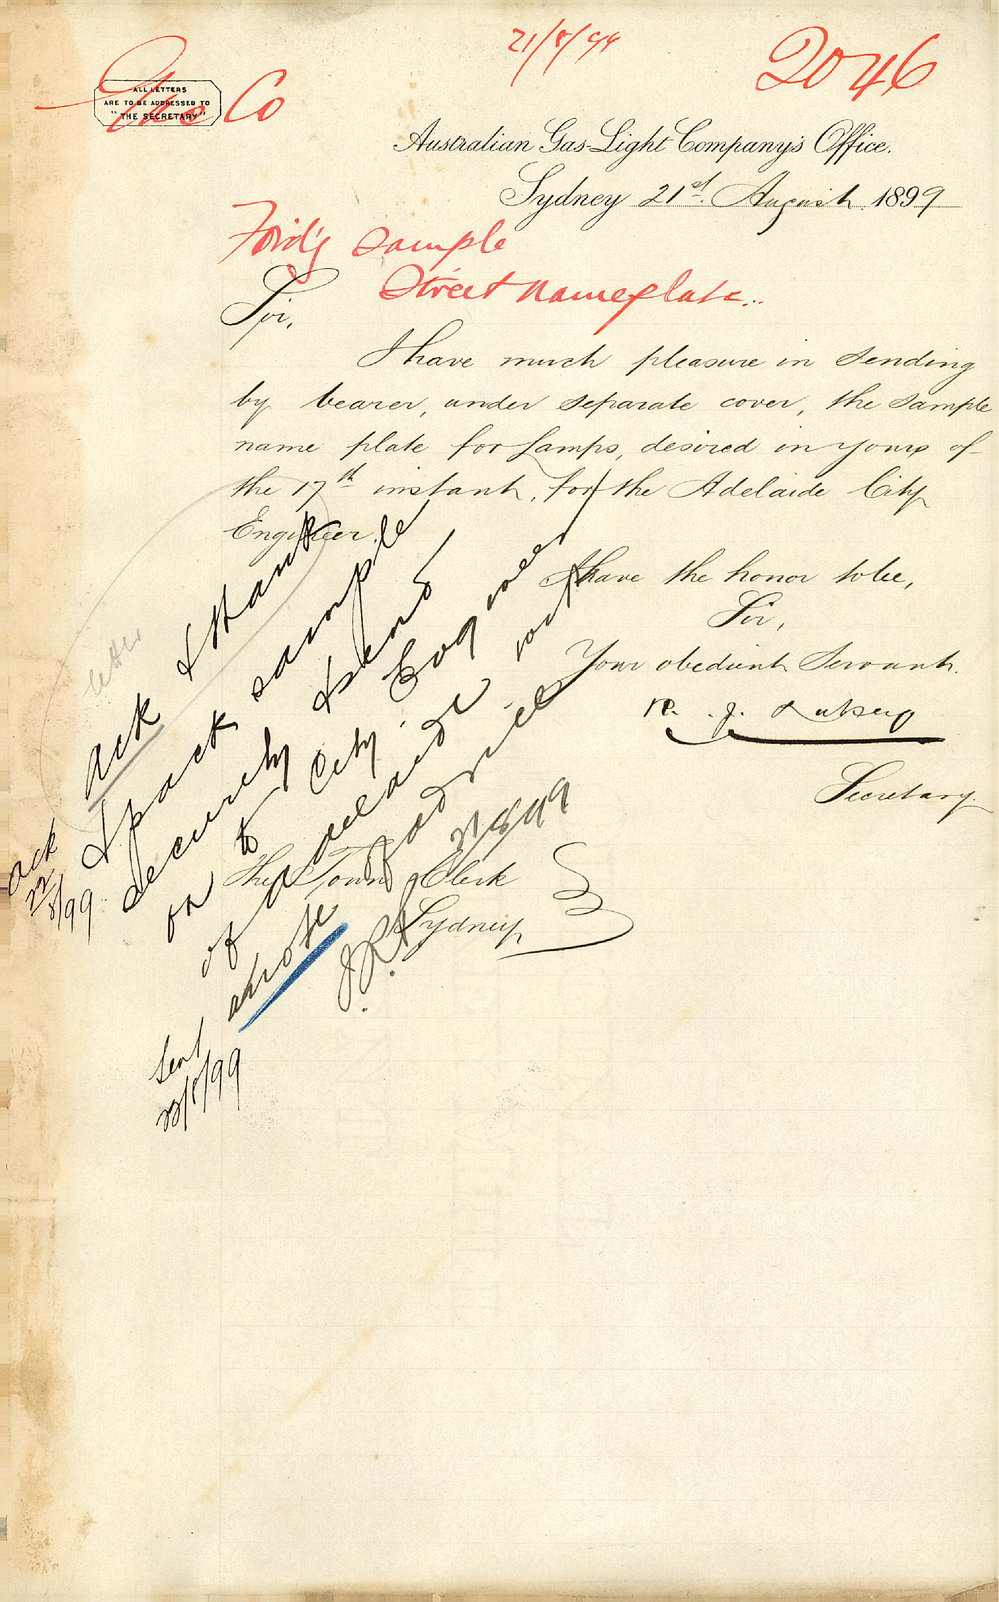 21/8/99
2046
Gas Co
ALL LETTERS
ARE TO BE ADDRESSED TO
"THE SECRETARY"
Australian Gas-Light Company's Office.
Sydney 21st. August 1899
Ford'g Sample
Street Nameplate..
Sir,
I have much pleasure in sending
by bearer, under separate cover, the sample
name plate for lamps, desired in yours of
the 17th instant, for the Adelaide City
Engineer.
I have the honor to be,
Sir,
Your obedient Servant.
R. J.
Secretary.
The Town Clerk
Sydney
letter
Ack & thank
& pack sample
securely & send
on to City Engineer
of Adelaide with
above
21/8/99
Ack
22/8/99
Sent
23/8/99